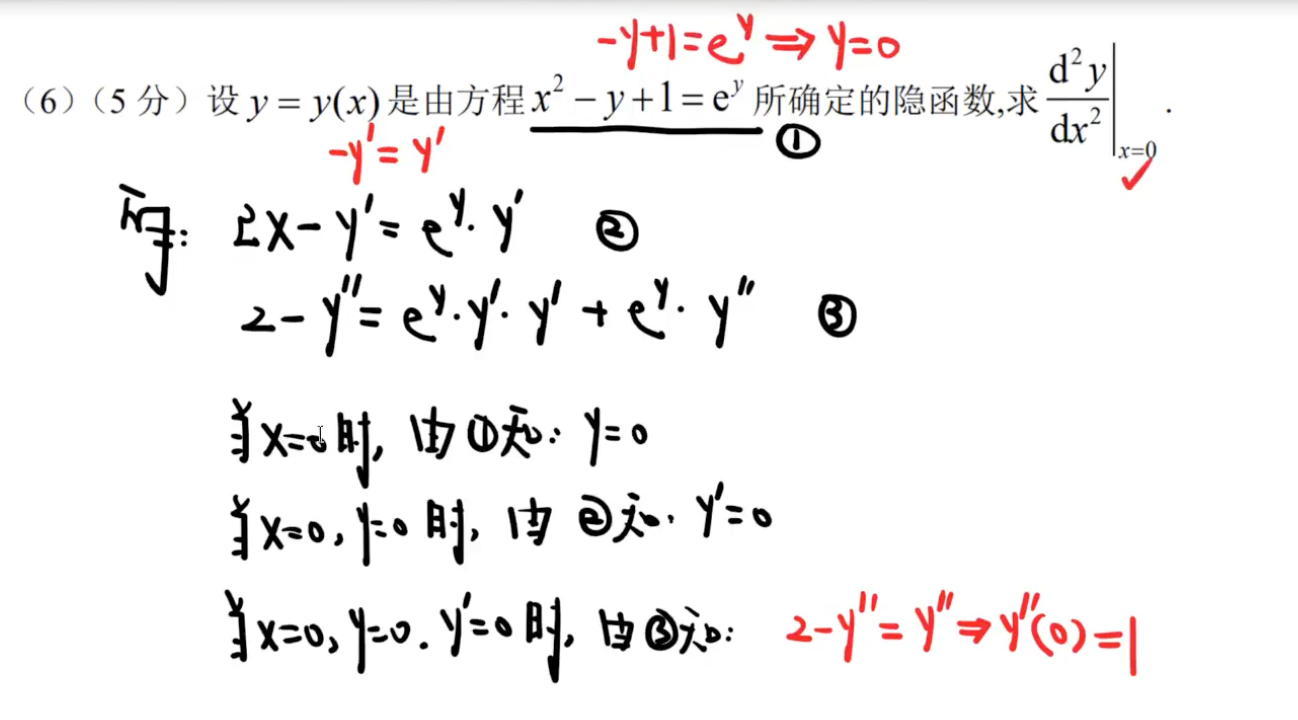 -y+1=e^y ⇒ y=0
(6)(5 分) 设 y = y(x) 是由方程 x² − y + 1 = e^y 所确定的隐函数,求 d²y/dx² |x=0 .
①
-y'=y'
2x-y'=e^y·y' ②
2-y''=e^y·y'·y'+e^y·y'' ③
当x=0时, 由①知: y=0
当x=0, y=0时, 由②知. y'=0
当x=0, y=0. y'=0时, 由③知: 2-y''=y''⇒y''(0)=1